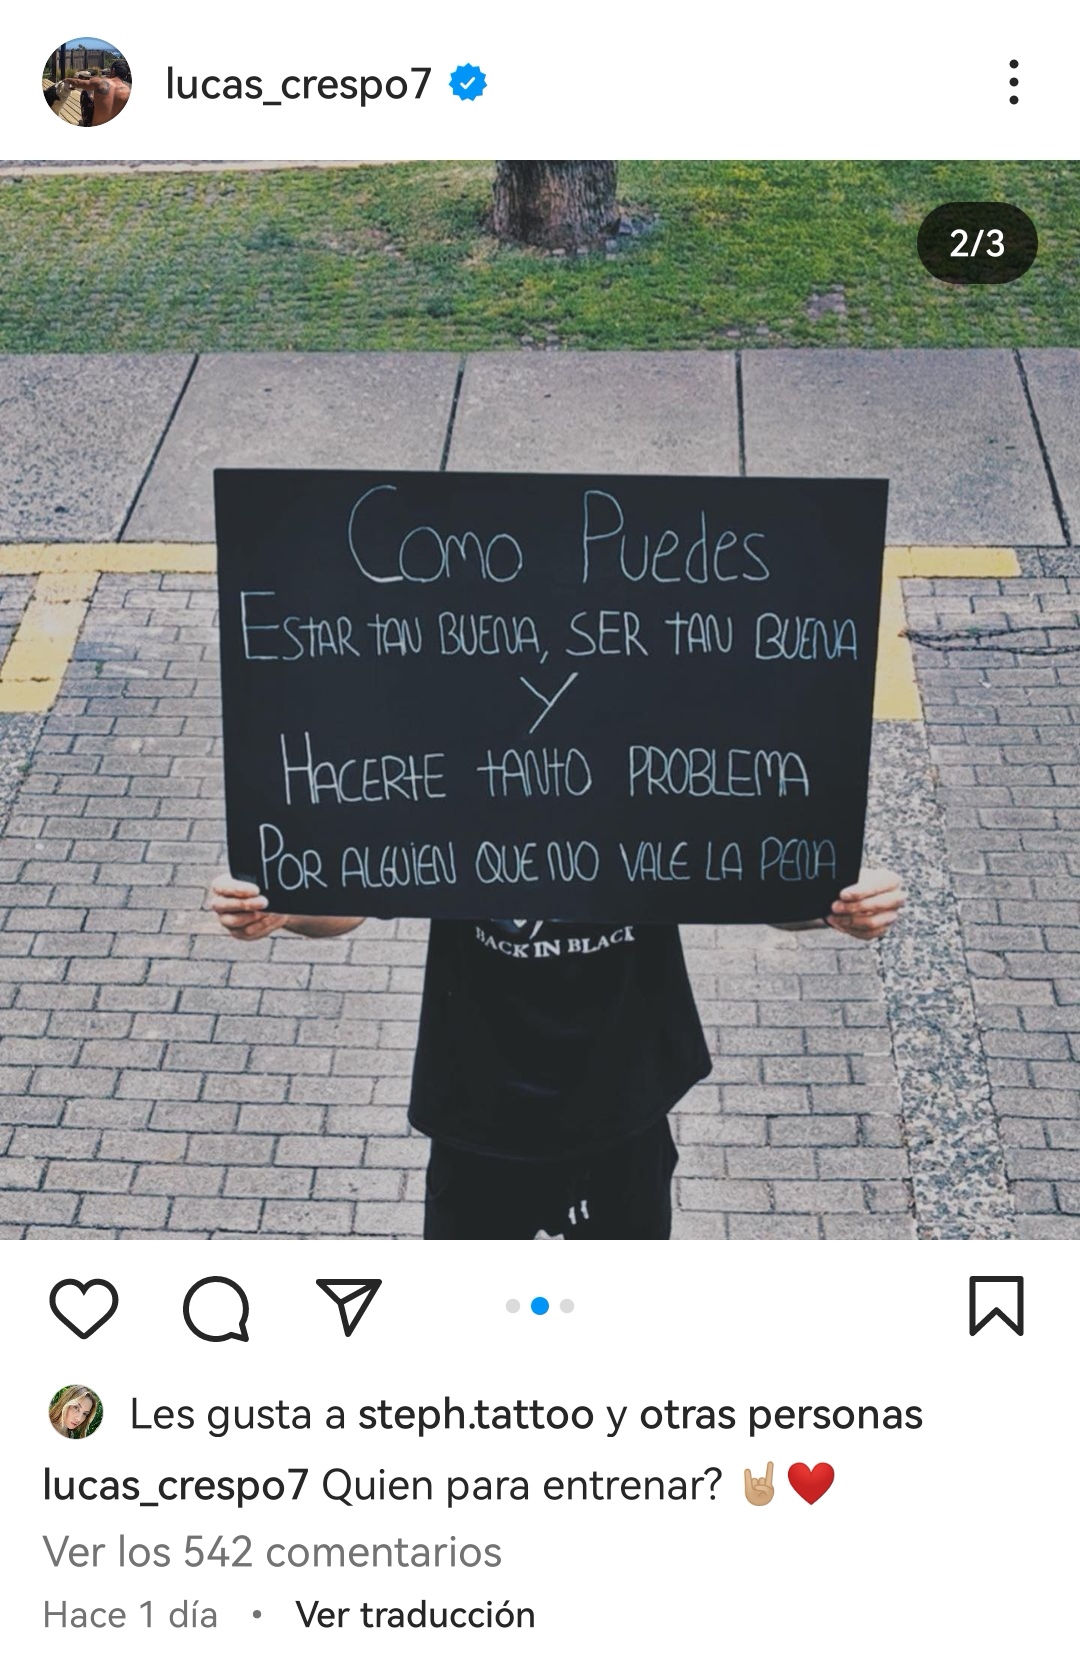 lucas_crespo7
2/3
Como Puedes
ESTAR TAN BUENA, SER TAN BUENA
Y
HACERTE TANTO PROBLEMA
POR ALGUIEN QUE NO VALE LA PENA
BACK IN BLACK
Les gusta a steph.tattoo y otras personas
lucas_crespo7 Quien para entrenar? 🤘🏼❤️
Ver los 542 comentarios
Hace 1 día • Ver traducción